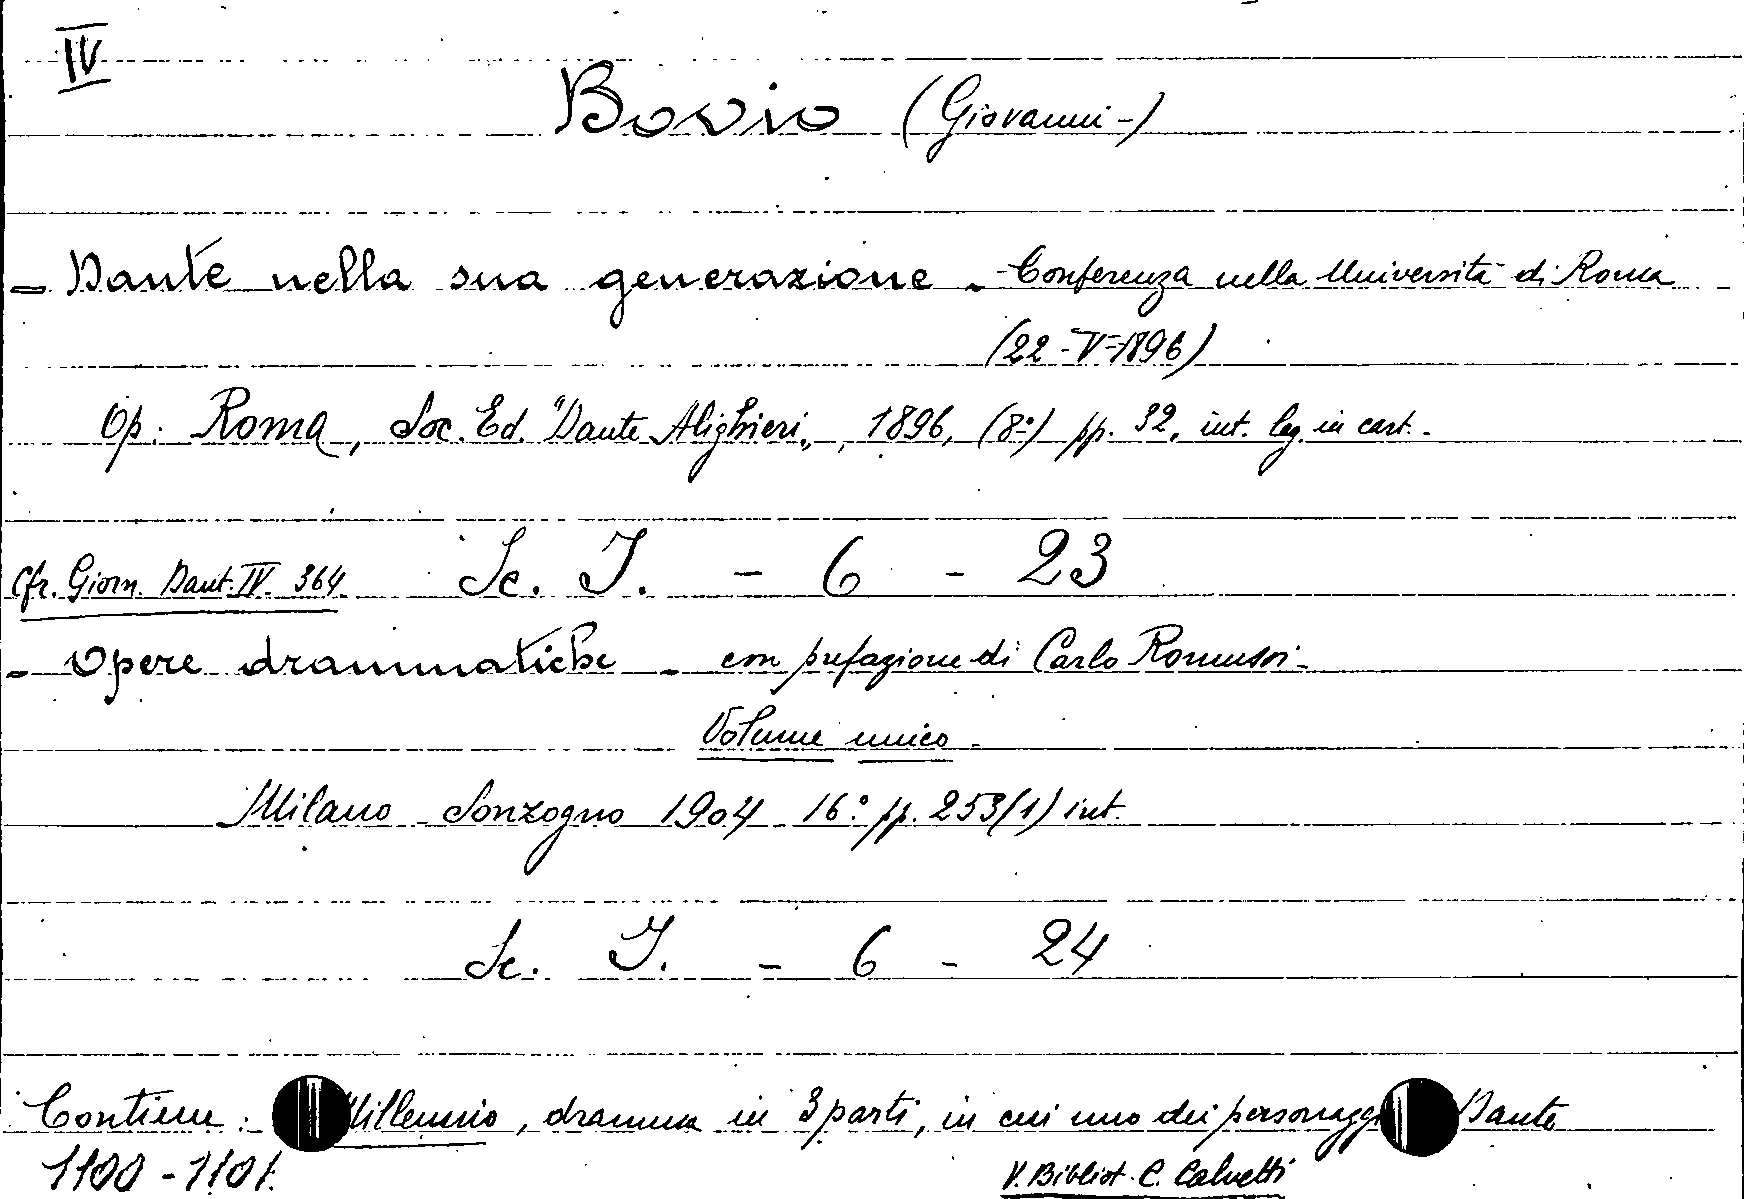 IV
Bovio (Giovanni-)
- Dante nella sua generazione - Conferenza nella Università di Roma
(22-V-1896)
Op. Roma, Soc. Ed. "Dante Alighieri", 1896, (8º) pp. 32, int. leg. in cart.-
Sc. I. - 6 - 23
Cfr. Giorn. Dant. IV. 364.
- Opere drammatiche - con prefazione di Carlo Romussi-
Volume unico -
Milano Sonzogno 1904 16º pp. 253(1) int.
Sc. I. - 6 - 24
Contiene: Millennio, dramma in 3 parti, in cui uno dei personaggi Dante
1100-1101.
V. Bibliot. C. Calvetti